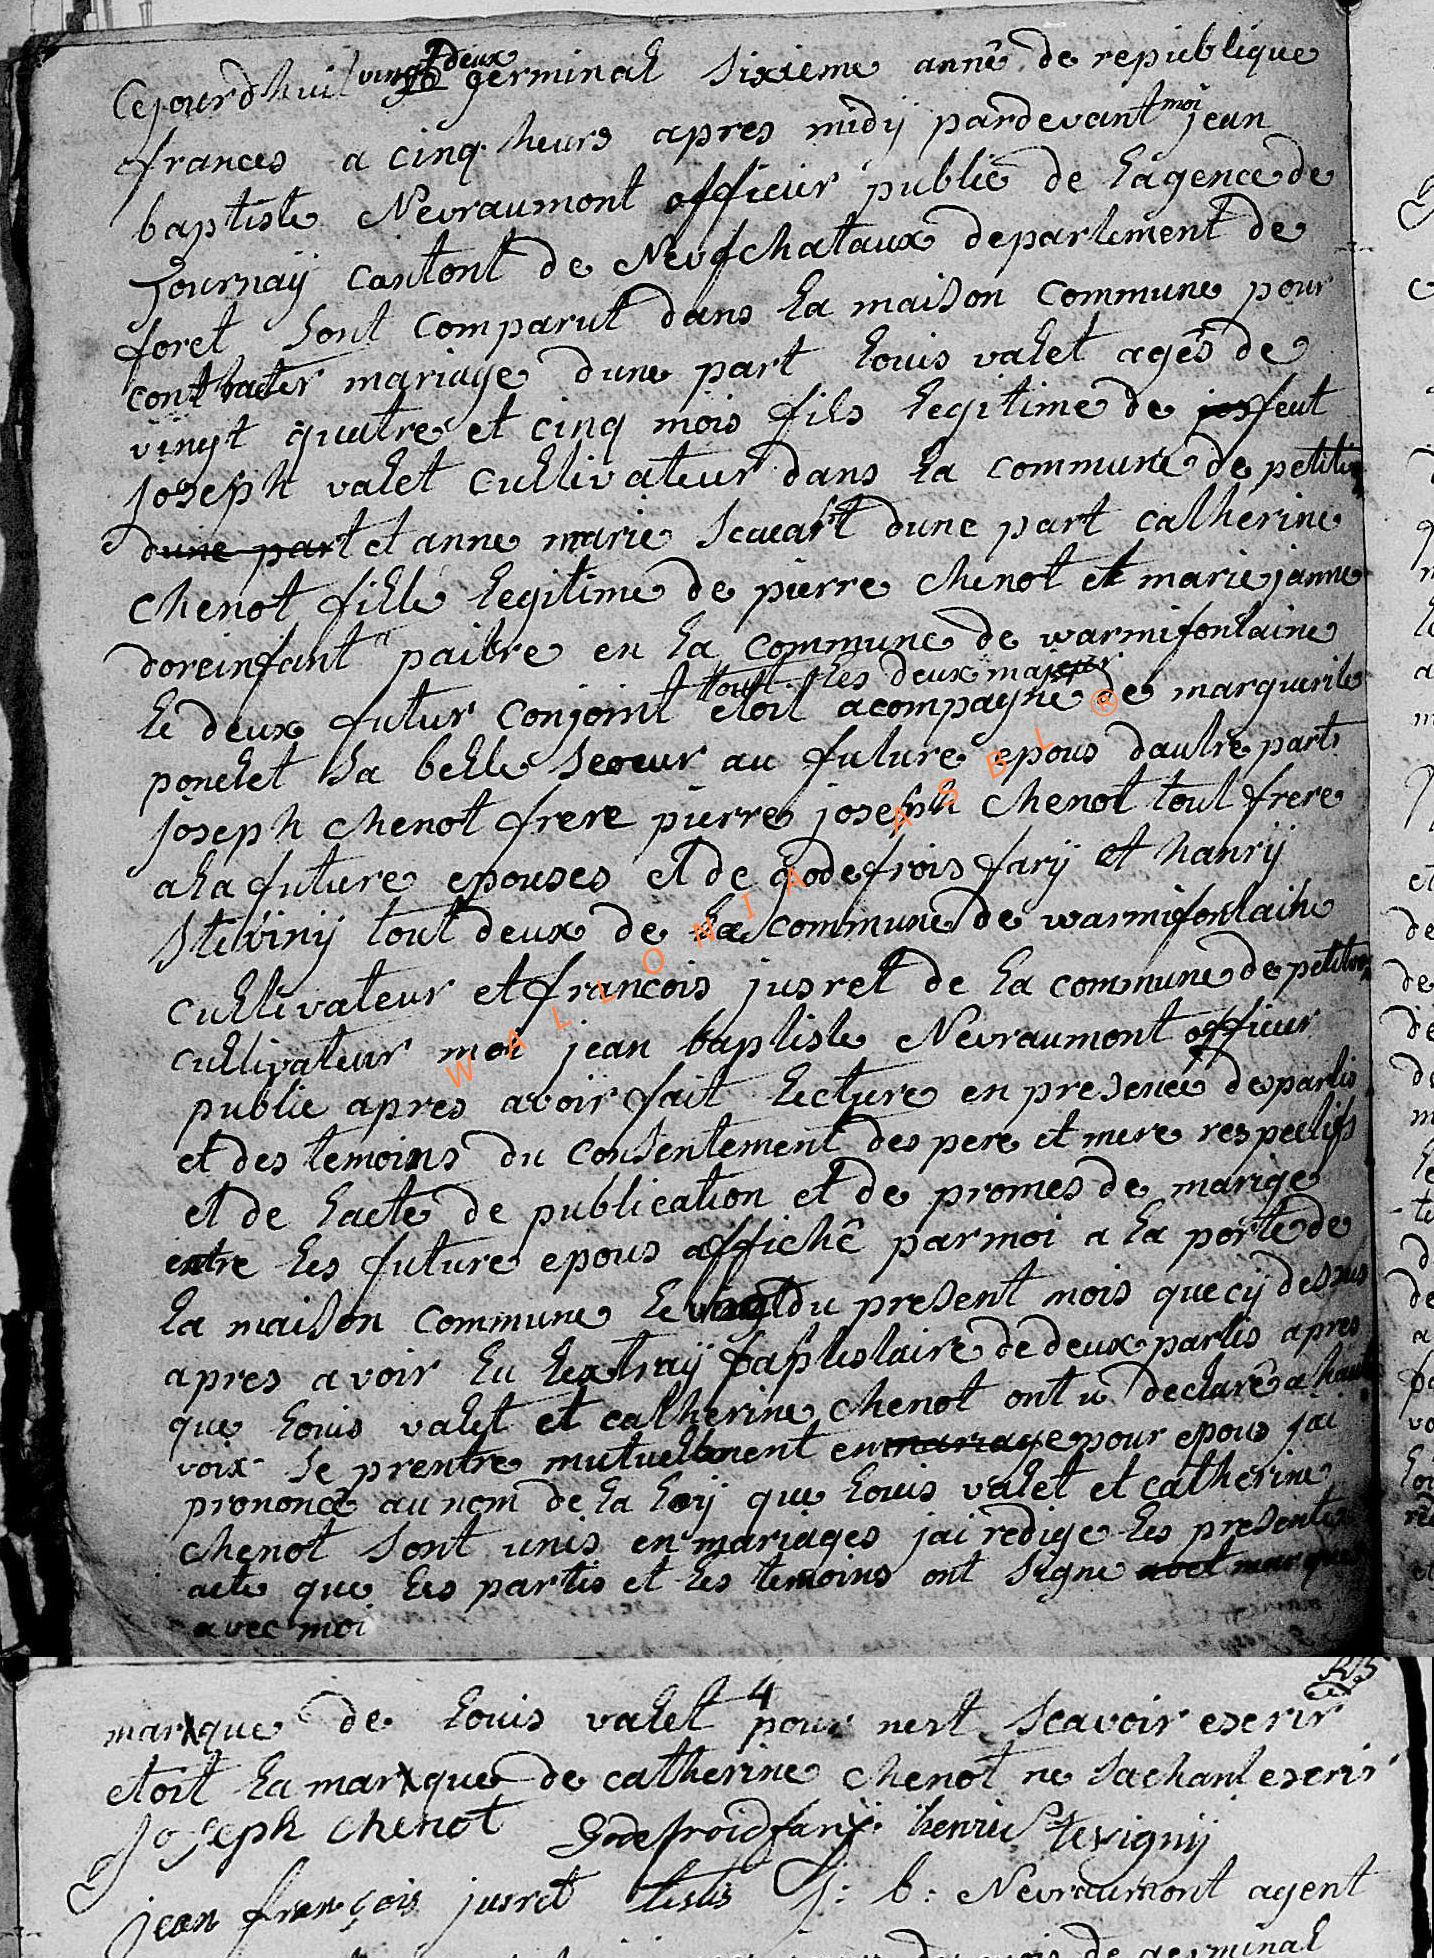 Cejourdhuit vingt deux germinal sixieme anné de republique
frances a cinq heurs apres midÿ pardevant moi jean
baptiste Nevraumont officier publie de lagence de
Tournaÿ cantont de Nevfchataux departement de
foret sont comparut dans la maison commune pour
contracter mariage dune part louis valet agés de
vingt quatre et cinq mois fils legitime de jos feut
joseph valet cultivateur dans la commune de petitvoir
dune part et anne marie scueart dune part catherine
chenot fille legitime de pierre chenot et marie janne
doreinfant paitre en la commune de warmifontaine
tout les deux majeur
le deux futur conjoint etoit acompagné de marguerite
ponclet sa belle seoeur au future epous dautre part
joseph chenot frere pierre joseph chenot tout frere
a la future epouses et de godefrois farÿ et hanrÿ
stevinÿ tout deux de la commune de warmifontaine
cultivateur et francois jusret de la commune de petitvoir
cultivateur moi jean baptiste Nevraumont officier
publie apres avoir fait lecture en presencé des partis
et des temoins du consentement des pere et mere respectifs
et de lacte de publication et de promes de marige
entre les future epous affiché par moi a la porte de
la maison commune le vingt du present mois que cÿ dessus
apres avoir lu lextraÿ baptistaire de deux partis apres
que louis valet et catherine chenot ont u declaré a haute
voix se prentre mutuellement en mariage pour epous jai
prononcé au nom de la loÿ que louis valet et catherine
chenot sont unis en mariages jai redige les presente
acte que les partis et les temoins ont signe avec marques
avec moi
4
marxque de louis valet pour nest scavoir escrir
etoit la marxque de catherine chenot ne sachant escrir
joseph chenot Godefroid farÿ henri stevignÿ
jean françois jusret testis J: b: Nevraumont agent
mois de germinal
WALLONIA ASBL ®